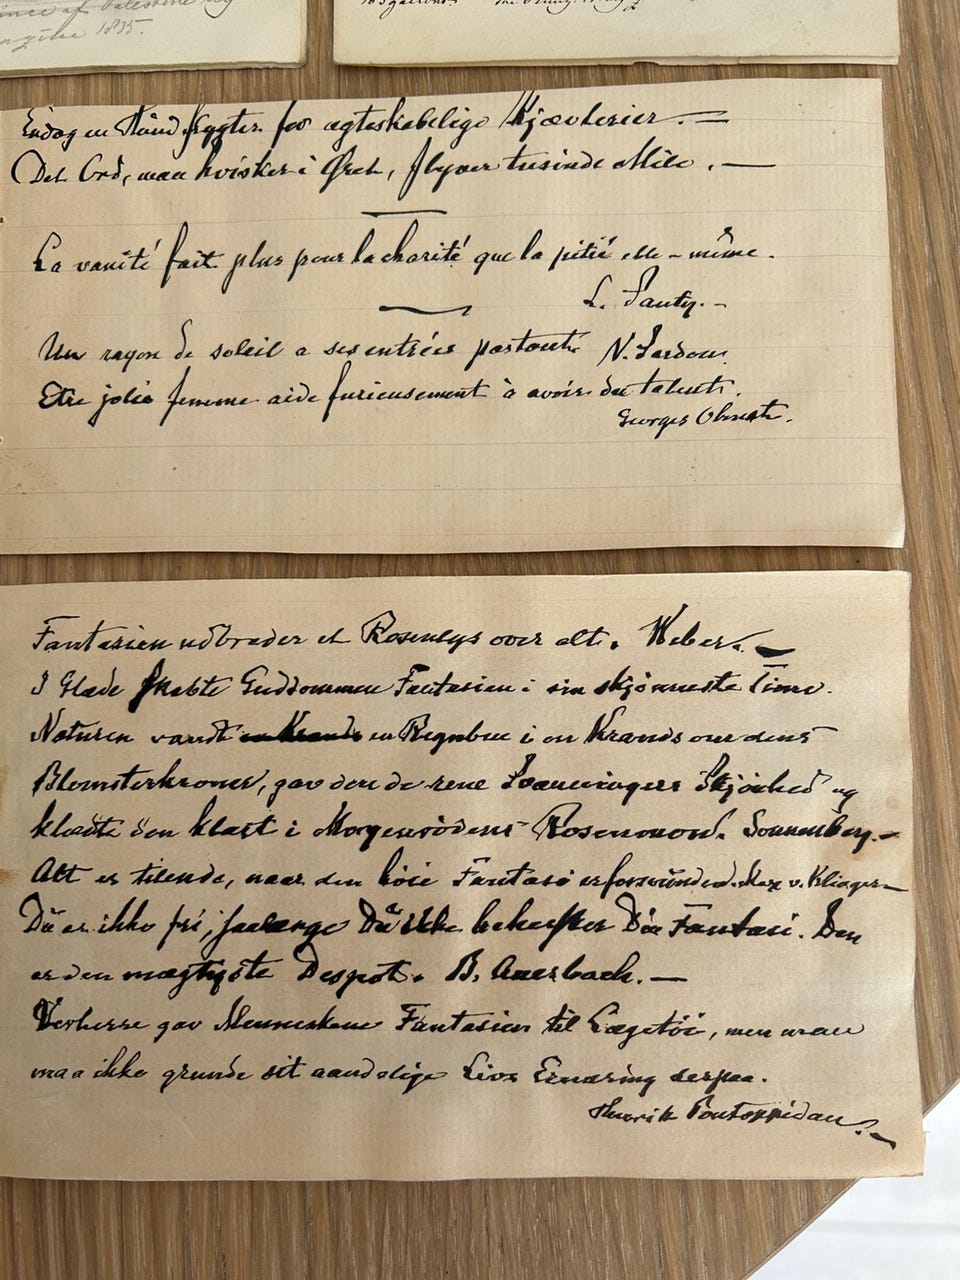 ince of Palestine
1835.
Endog en Hund frygter for ægteskabelige Kjævlerier. —
Det Ord, man hvisker i Øret, flyver tusinde Mile. —
La vanité fait plus pour la charité que la pitié elle-même.
L.
Un rayon de soleil a ses entrées partout. Sardou.
Etre jolie femme aide furieusement à avoir du talent.
Georges Ohnet.
Fantasien udbreder et Rosenlys over alt. Weber. —
I Glæde skabte Guddommen Fantasien i sin skjønneste Time.
Naturen vandt en Regnbue i en Krands om dens
Blomsterkrone, gav den de rene Skjønhed og
klædte den klart i Morgenrødens Sonnenberg. —
Alt er tilende, naar den høie Fantasi er forsvunden. Max v. Klinger —
Du er ikke fri, saalænge Du ikke behersker Din Fantasi. Den
er den mægtigste Despot. B. Auerbach. —
Vorherre gav Menneskene Fantasien til Legetøi, men man
maa ikke grunde sit aandelige Livs Ernæring derpaa.
Henrik Pontoppidan. —